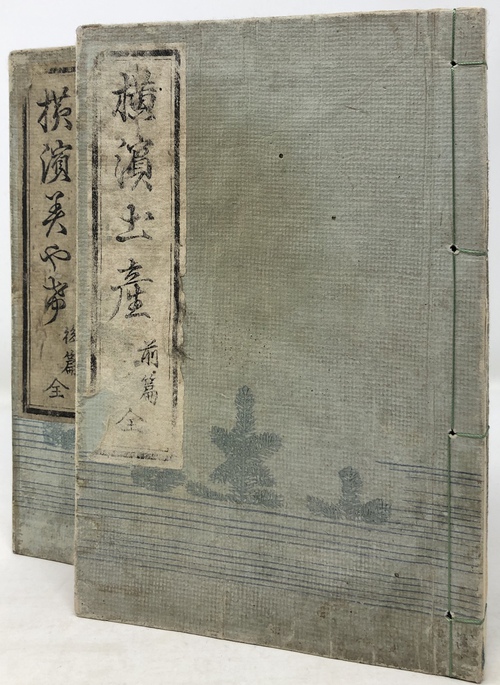 横濱土産
前篇
全
横濱美や希
後篇
全